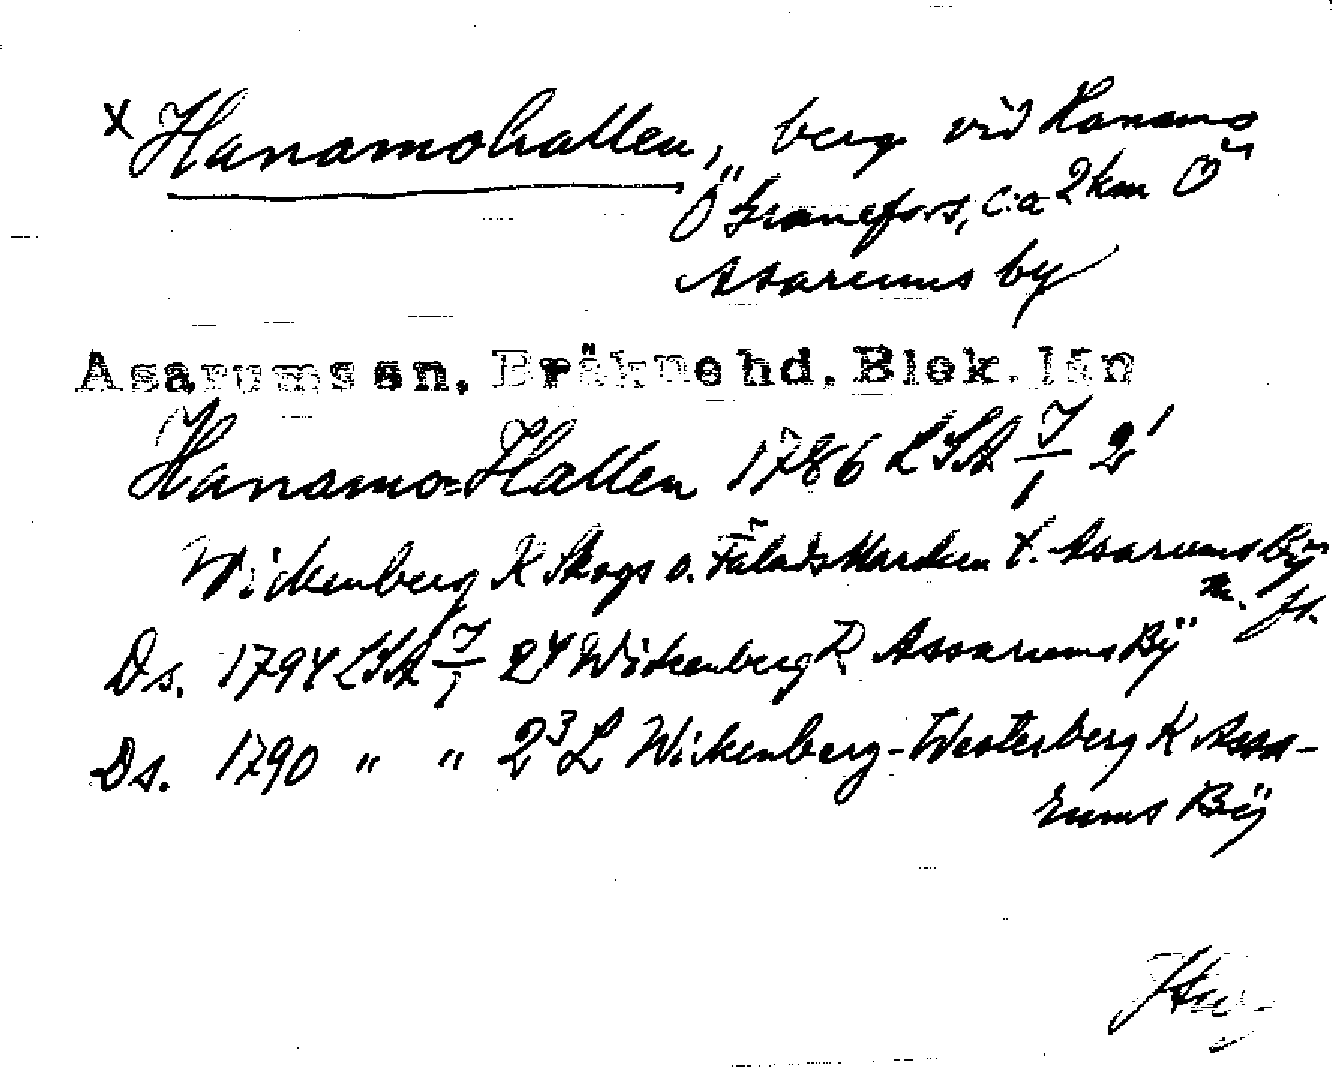 x Hanamohallen, berg vid Hanamo
Ö Granefors, c:a 2 km Ö
Asarums by
Asarums sn, Bräkne hd. Blek. län
Hanamo=Hallen 1786 LSA I/1 2¹
Wickenberg K Skogs o. Fälads Marken t. Asarums By
m. fl.
Ds. 1794 LSA I/1 2⁴ Wickenberg K Assarums Bÿ
Ds. 1790 " " 2³ L Wickenberg-Westerberg K Assa-
rums Bÿ